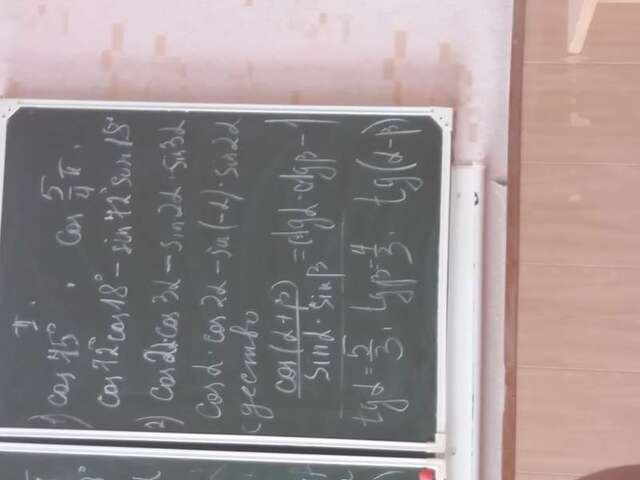 II.
1) cos 75°, cos 5/4 π.
cos 72° cos 18° − sin 72° sin 18°
2) cos 2α cos 3α − sin 2α · sin 3α
cos α · cos 2α − sin (−α) · sin 2α
cos(α+β) / sin α · sin β = ctg α · ctg β − 1
tg α = 5/3, tg β = 4/3. tg(α−β)